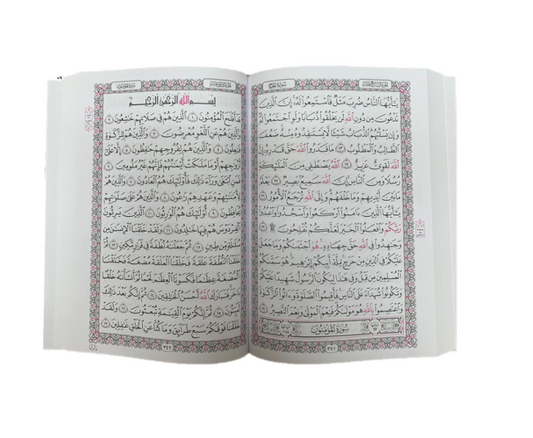 يَـٰٓأَيُّهَا ٱلنَّاسُ ضُرِبَ مَثَلٌ فَٱسْتَمِعُوا۟ لَهُۥٓ إِنَّ ٱلَّذِينَ
تَدْعُونَ مِن دُونِ ٱللَّهِ لَن يَخْلُقُوا۟ ذُبَابًا وَلَوِ ٱجْتَمَعُوا۟ لَهُۥ
وَإِن يَسْلُبْهُمُ ٱلذُّبَابُ شَيْـًٔا لَّا يَسْتَنقِذُوهُ مِنْهُ ضَعُفَ
ٱلطَّالِبُ وَٱلْمَطْلُوبُ ٧٣ مَا قَدَرُوا۟ ٱللَّهَ حَقَّ قَدْرِهِۦٓ إِنَّ
ٱللَّهَ لَقَوِىٌّ عَزِيزٌ ٧٤ ٱللَّهُ يَصْطَفِى مِنَ ٱلْمَلَـٰٓئِكَةِ
رُسُلًا وَمِنَ ٱلنَّاسِ إِنَّ ٱللَّهَ سَمِيعٌۢ بَصِيرٌ ٧٥ يَعْلَمُ
مَا بَيْنَ أَيْدِيهِمْ وَمَا خَلْفَهُمْ وَإِلَى ٱللَّهِ تُرْجَعُ ٱلْأُمُورُ ٧٦
يَـٰٓأَيُّهَا ٱلَّذِينَ ءَامَنُوا۟ ٱرْكَعُوا۟ وَٱسْجُدُوا۟ وَٱعْبُدُوا۟
رَبَّكُمْ وَٱفْعَلُوا۟ ٱلْخَيْرَ لَعَلَّكُمْ تُفْلِحُونَ ۩ ٧٧
وَجَـٰهِدُوا۟ فِى ٱللَّهِ حَقَّ جِهَادِهِۦ هُوَ ٱجْتَبَىٰكُمْ وَمَا جَعَلَ
عَلَيْكُمْ فِى ٱلدِّينِ مِنْ حَرَجٍ مِّلَّةَ أَبِيكُمْ إِبْرَٰهِيمَ هُوَ سَمَّىٰكُمُ
ٱلْمُسْلِمِينَ مِن قَبْلُ وَفِى هَـٰذَا لِيَكُونَ ٱلرَّسُولُ شَهِيدًا عَلَيْكُمْ
وَتَكُونُوا۟ شُهَدَآءَ عَلَى ٱلنَّاسِ فَأَقِيمُوا۟ ٱلصَّلَوٰةَ وَءَاتُوا۟ ٱلزَّكَوٰةَ
وَٱعْتَصِمُوا۟ بِٱللَّهِ هُوَ مَوْلَىٰكُمْ فَنِعْمَ ٱلْمَوْلَىٰ وَنِعْمَ ٱلنَّصِيرُ ٧٨
سُورَةُ المُؤْمِنُون
٣٤١
بِسْمِ ٱللَّهِ ٱلرَّحْمَـٰنِ ٱلرَّحِيمِ
قَدْ أَفْلَحَ ٱلْمُؤْمِنُونَ ١ ٱلَّذِينَ هُمْ فِى صَلَاتِهِمْ خَـٰشِعُونَ ٢
وَٱلَّذِينَ هُمْ عَنِ ٱللَّغْوِ مُعْرِضُونَ ٣ وَٱلَّذِينَ هُمْ لِلزَّكَوٰةِ
فَـٰعِلُونَ ٤ وَٱلَّذِينَ هُمْ لِفُرُوجِهِمْ حَـٰفِظُونَ ٥ إِلَّا عَلَىٰٓ
أَزْوَٰجِهِمْ أَوْ مَا مَلَكَتْ أَيْمَـٰنُهُمْ فَإِنَّهُمْ غَيْرُ مَلُومِينَ ٦
فَمَنِ ٱبْتَغَىٰ وَرَآءَ ذَٰلِكَ فَأُو۟لَـٰٓئِكَ هُمُ ٱلْعَادُونَ ٧ وَٱلَّذِينَ هُمْ
لِأَمَـٰنَـٰتِهِمْ وَعَهْدِهِمْ رَٰعُونَ ٨ وَٱلَّذِينَ هُمْ عَلَىٰ صَلَوَٰتِهِمْ
يُحَافِظُونَ ٩ أُو۟لَـٰٓئِكَ هُمُ ٱلْوَٰرِثُونَ ١٠ ٱلَّذِينَ يَرِثُونَ
ٱلْفِرْدَوْسَ هُمْ فِيهَا خَـٰلِدُونَ ١١ وَلَقَدْ خَلَقْنَا ٱلْإِنسَـٰنَ مِن
سُلَـٰلَةٍ مِّن طِينٍ ١٢ ثُمَّ جَعَلْنَـٰهُ نُطْفَةً فِى قَرَارٍ مَّكِينٍ ١٣ ثُمَّ
خَلَقْنَا ٱلنُّطْفَةَ عَلَقَةً فَخَلَقْنَا ٱلْعَلَقَةَ مُضْغَةً فَخَلَقْنَا
ٱلْمُضْغَةَ عِظَـٰمًا فَكَسَوْنَا ٱلْعِظَـٰمَ لَحْمًا ثُمَّ أَنشَأْنَـٰهُ خَلْقًا
ءَاخَرَ فَتَبَارَكَ ٱللَّهُ أَحْسَنُ ٱلْخَـٰلِقِينَ ١٤ ثُمَّ إِنَّكُم بَعْدَ ذَٰلِكَ
لَمَيِّتُونَ ١٥ ثُمَّ إِنَّكُمْ يَوْمَ ٱلْقِيَـٰمَةِ تُبْعَثُونَ ١٦ وَلَقَدْ
خَلَقْنَا فَوْقَكُمْ سَبْعَ طَرَآئِقَ وَمَا كُنَّا عَنِ ٱلْخَلْقِ غَـٰفِلِينَ ١٧
٣٤٢